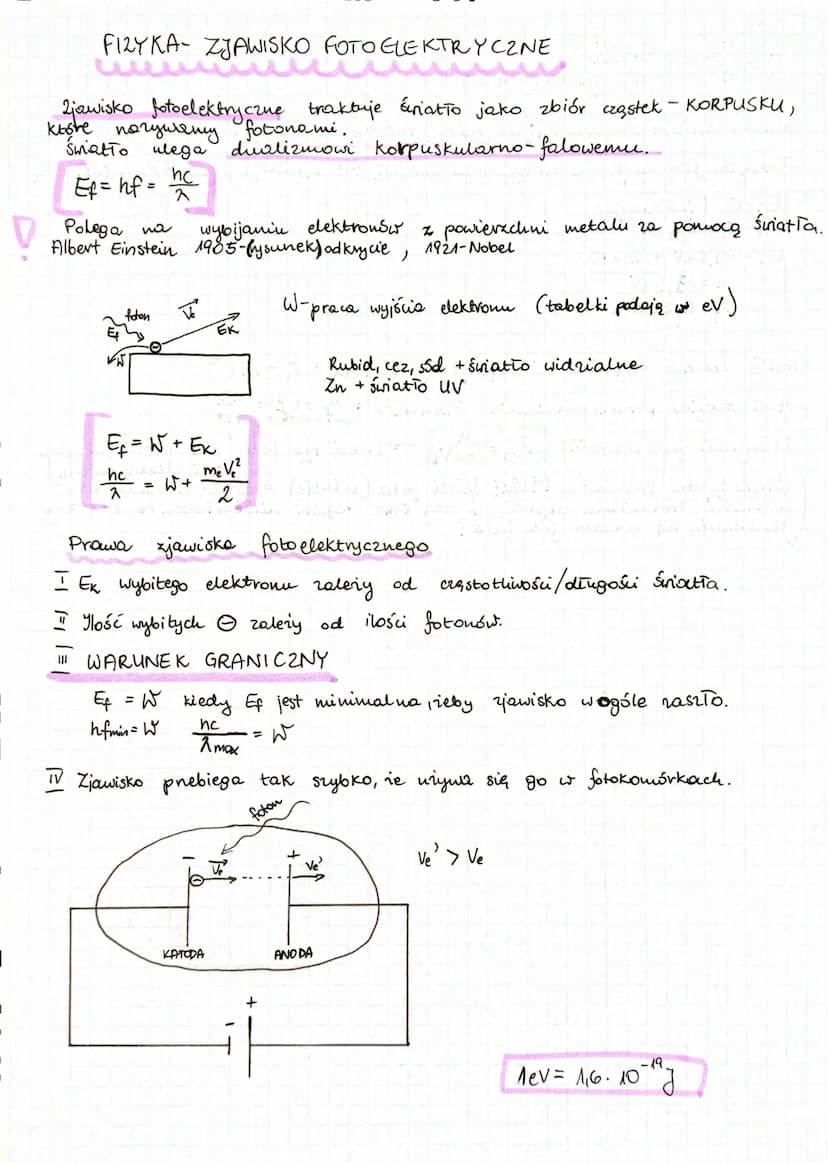 FIZYKA - ZJAWISKO FOTOELEKTRYCZNE
Zjawisko fotoelektryczne traktuje światło jako zbiór cząstek - KORPUSKU,
które nazywamy fotonami.
Światło ulega dualizmowi korpuskularno-falowemu.
Ef = hf = hc/λ
! Polega na wybijaniu elektronów z powierzchni metalu za pomocą światła.
Albert Einstein 1905-(rysunek) odkrycie, 1921-Nobel
W-praca wyjścia elektronu (tabelki podają w eV)
foton Ve
Ef EK
W
Rubid, cez, sód + światło widzialne
Zn + światło UV
Ef = W + Ek
hc/λ = W + meVe²/2
Prawa zjawiska fotoelektrycznego
I Ek wybitego elektronu zależy od częstotliwości/długości światła.
II Ilość wybitych ⊖ zależy od ilości fotonów.
III WARUNEK GRANICZNY
Ef = W kiedy Ef jest minimalna, żeby zjawisko wogóle zaszło.
hfmin = W hc/λmax = W
IV Zjawisko przebiega tak szybko, że używa się go w fotokomórkach.
foton
- Ve + Ve'
⊖
Ve' > Ve
KATODA ANODA
- +
1eV = 1,6 · 10⁻¹⁹ J